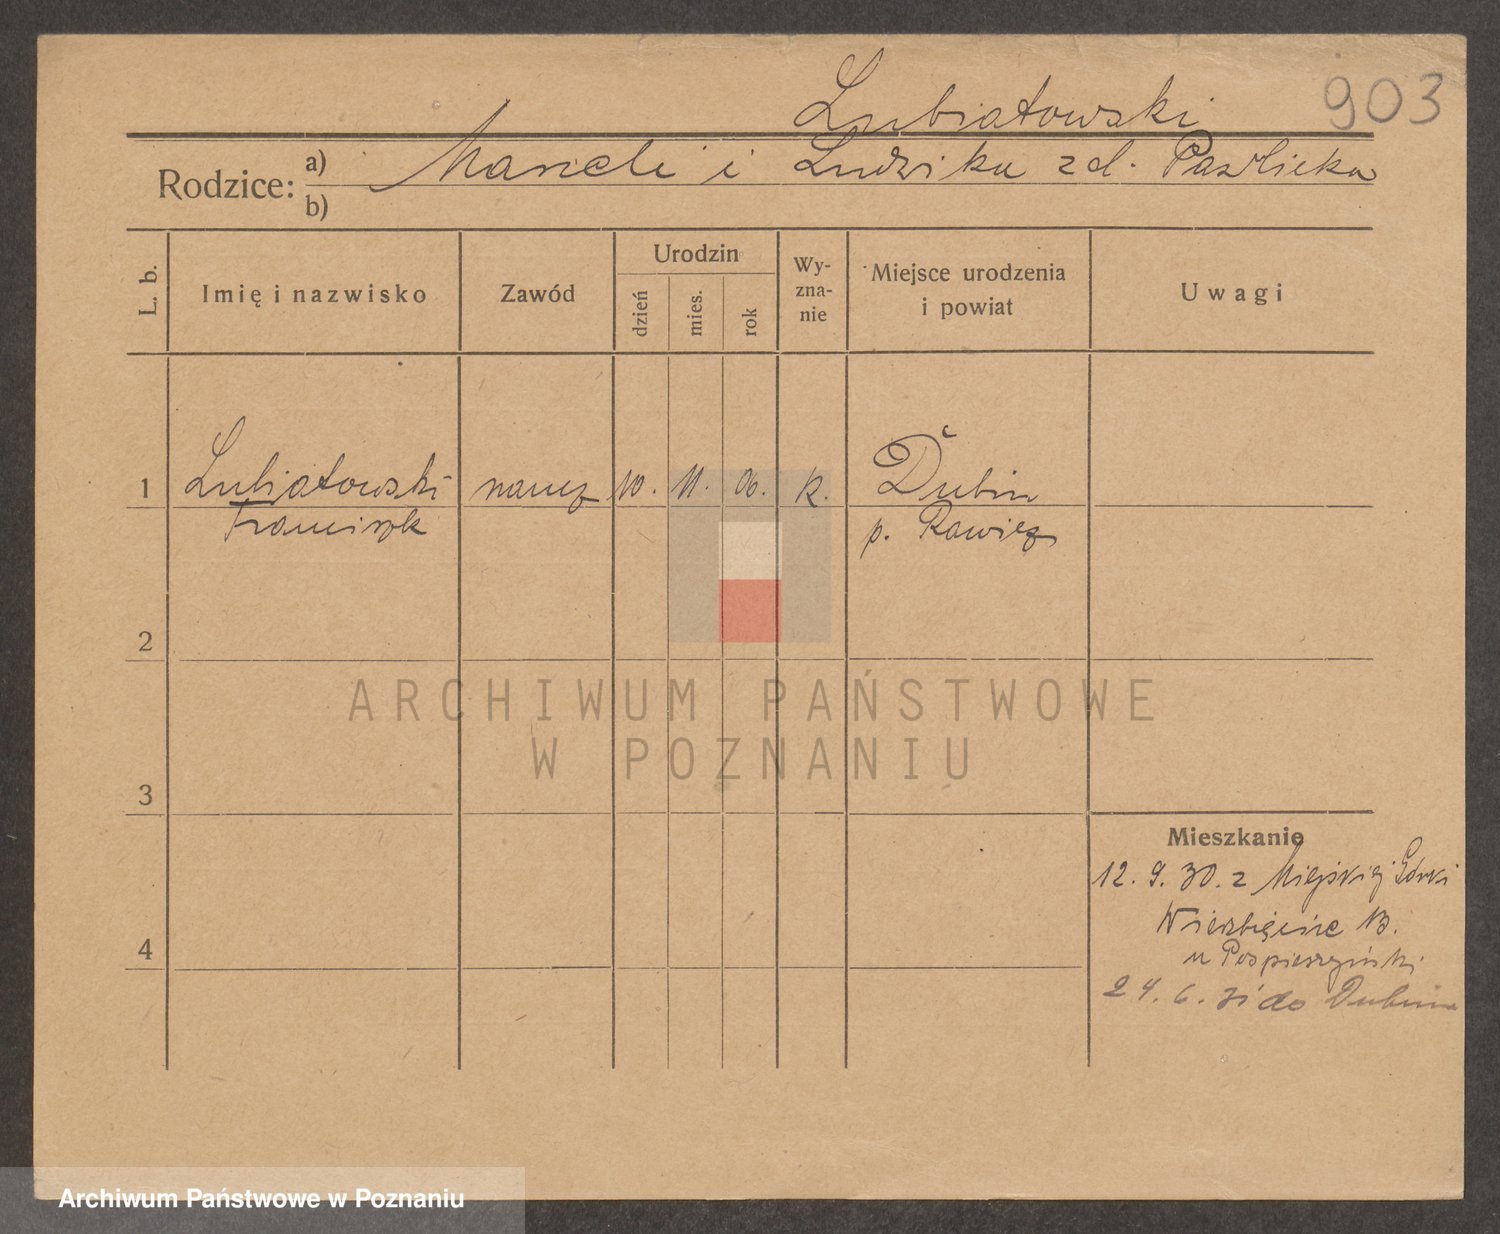 903
Lubiatowski
Rodzice: a) Marceli i Ludwika zd. Pawlicka
b)
L. b.
Imię i nazwisko
Zawód
Urodzin
dzień
mies.
rok
Wy-
zna-
nie
Miejsce urodzenia
i powiat
Uwagi
1 Lubiatowski naucz 10. 11. 06. k. Dubin
Franciszek p. Rawicz
2
3
4
ARCHIWUM PAŃSTWOWE
W POZNANIU
Mieszkanie
12. 9. 30. z Miejskiej Górki
Wierzbięcice 13.
u Pospieszyński
24. 6. 31 do Dubina
Archiwum Państwowe w Poznaniu